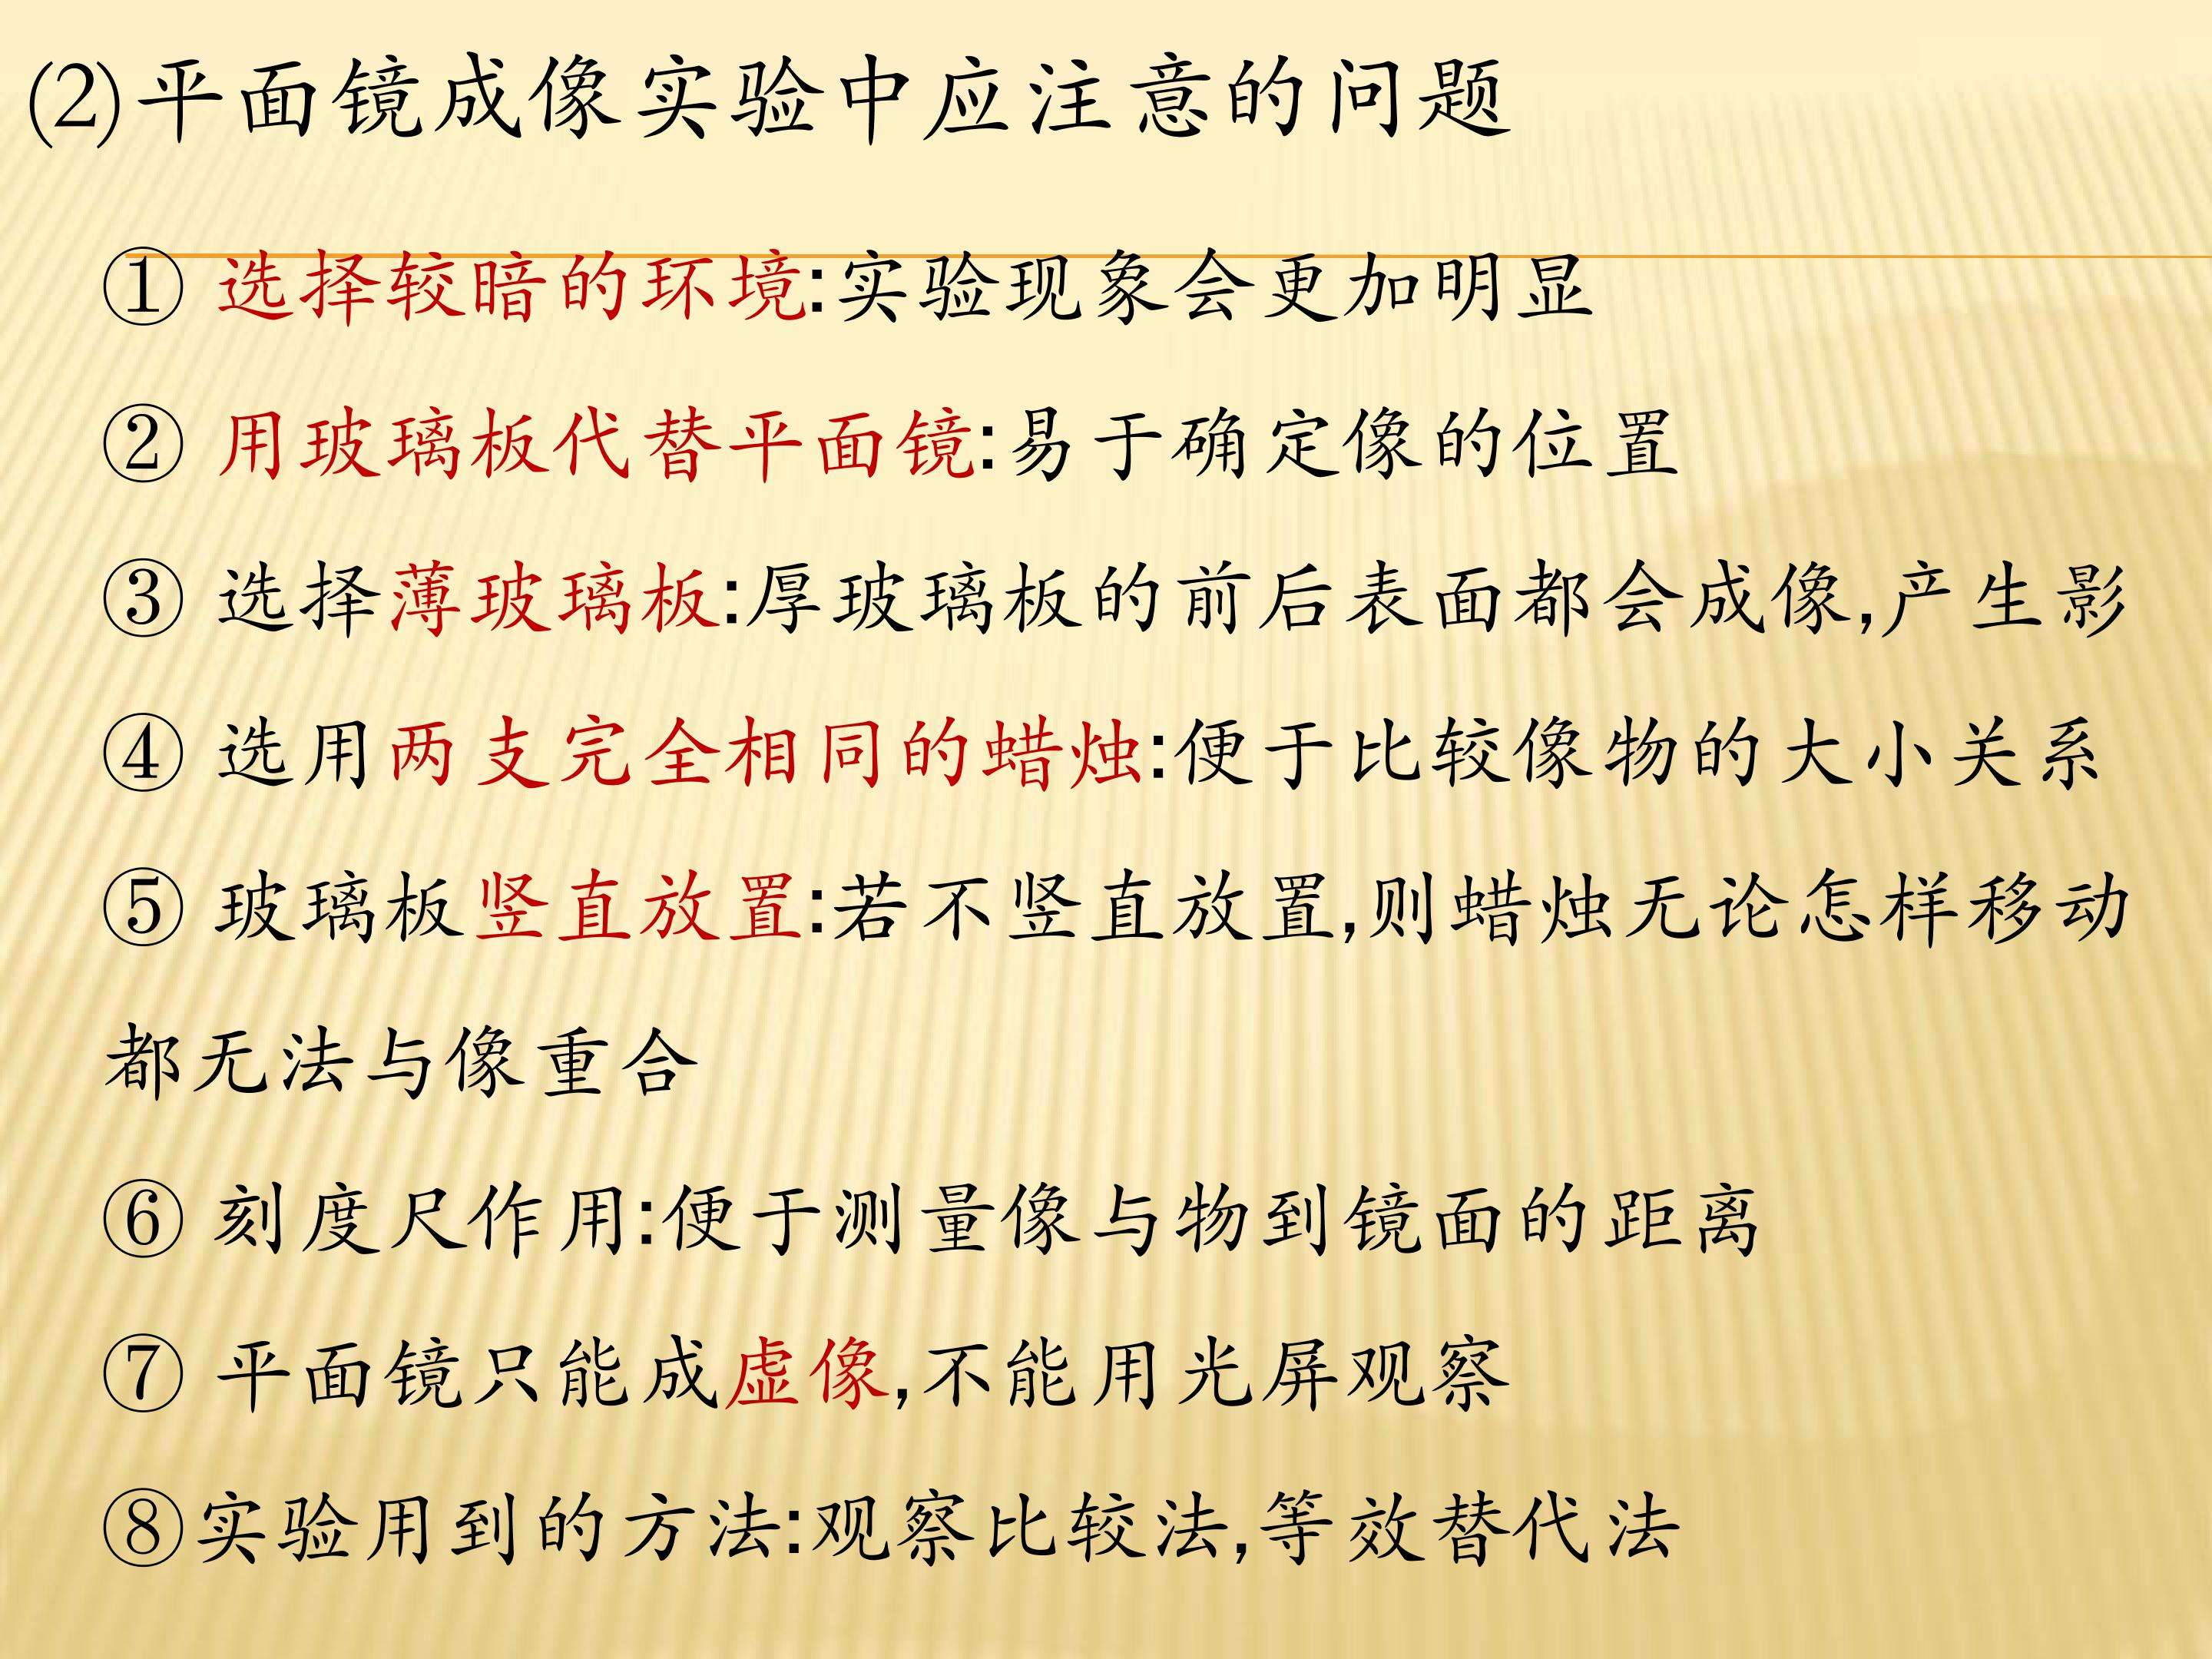 (2)平面镜成像实验中应注意的问题
① 选择较暗的环境:实验现象会更加明显
② 用玻璃板代替平面镜:易于确定像的位置
③ 选择薄玻璃板:厚玻璃板的前后表面都会成像,产生影
④ 选用两支完全相同的蜡烛:便于比较像物的大小关系
⑤ 玻璃板竖直放置:若不竖直放置,则蜡烛无论怎样移动
都无法与像重合
⑥ 刻度尺作用:便于测量像与物到镜面的距离
⑦ 平面镜只能成虚像,不能用光屏观察
⑧实验用到的方法:观察比较法,等效替代法